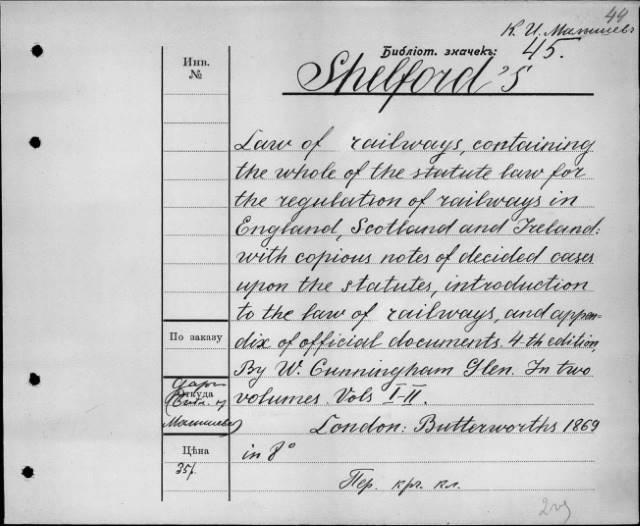 44
К. И. Малышевъ
Библіот. значекъ: 45.
Инв.
№
Shelford's
Law of railways, containing
the whole of the statute law for
the regulation of railways in
England, Scotland and Ireland:
with copious notes of decided cases
upon the statutes, introduction
to the law of railways, and appen-
dix of official documents. 4th edition,
By W. Cunningham Glen. In two
volumes. Vols I-II.
London: Butterworths 1869
in 8°
Пер. кр. кл.
По заказу
Откуда
Малышева
Цѣна
35 f.